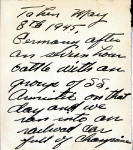 Token May
8TH 1945,
Germany after
an
battle with an
group of SS.
on that
day and we
ran into an
railroad car
full of Champaine